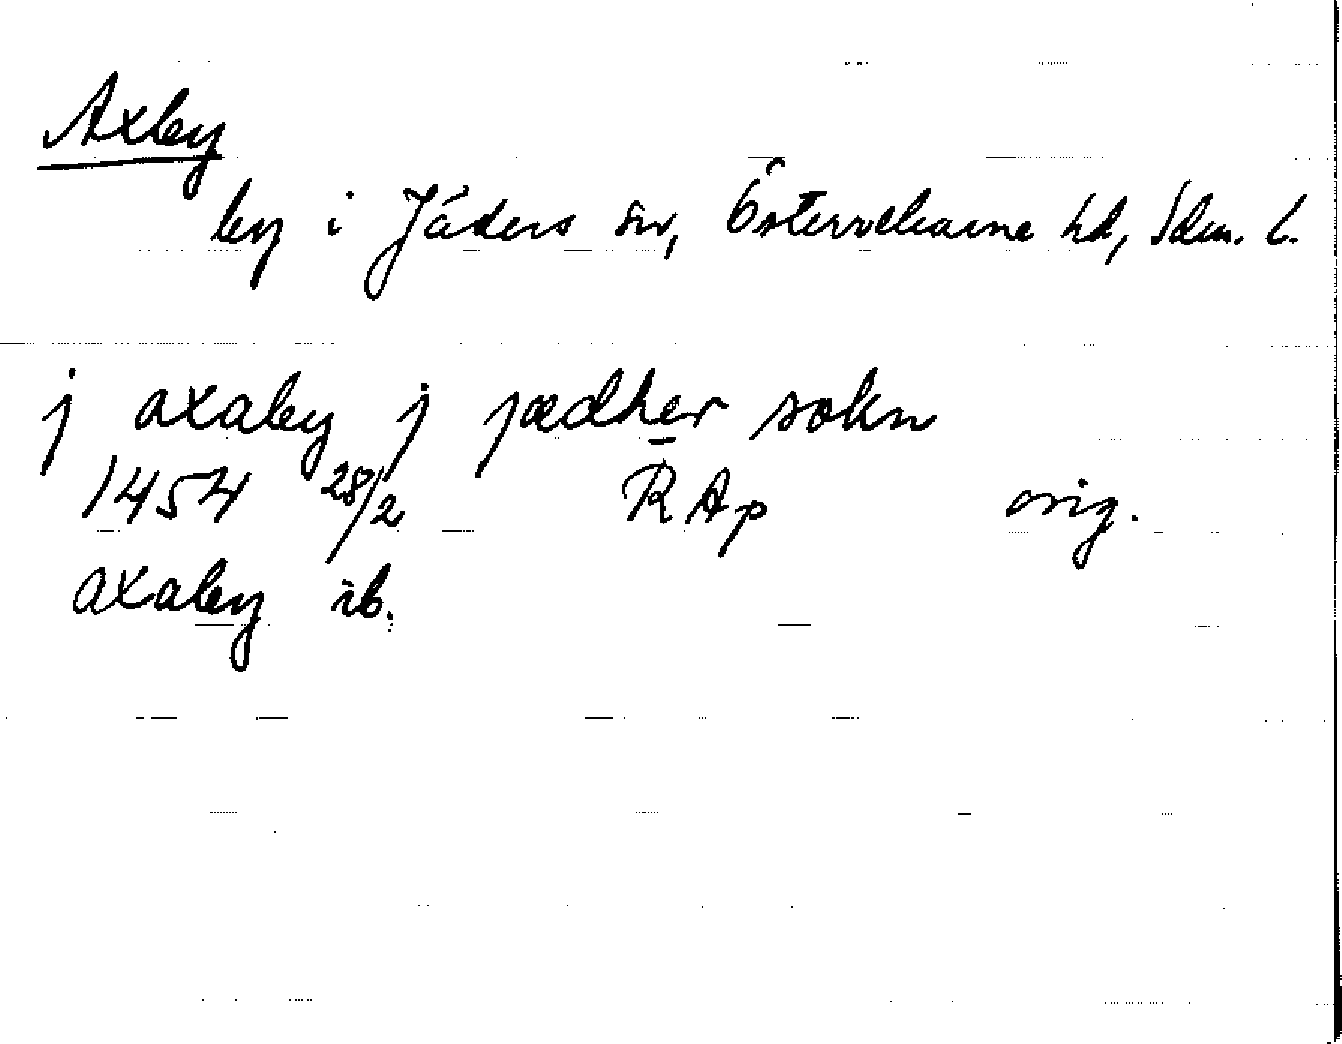 Axby
by i Jäders sn, Österrekarne hd, Sdm. l.
j axaby j jædher sokn
1454 28/2 RAp orig.
axaby ib.